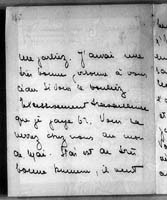 me parliez. J'aurai une
très bonne personne à vous
céder si vous le vouliez
que je paye 65. Vous la
verrez chez nous au mois
de Mai. J'ai eu de très
bonne ; il vient